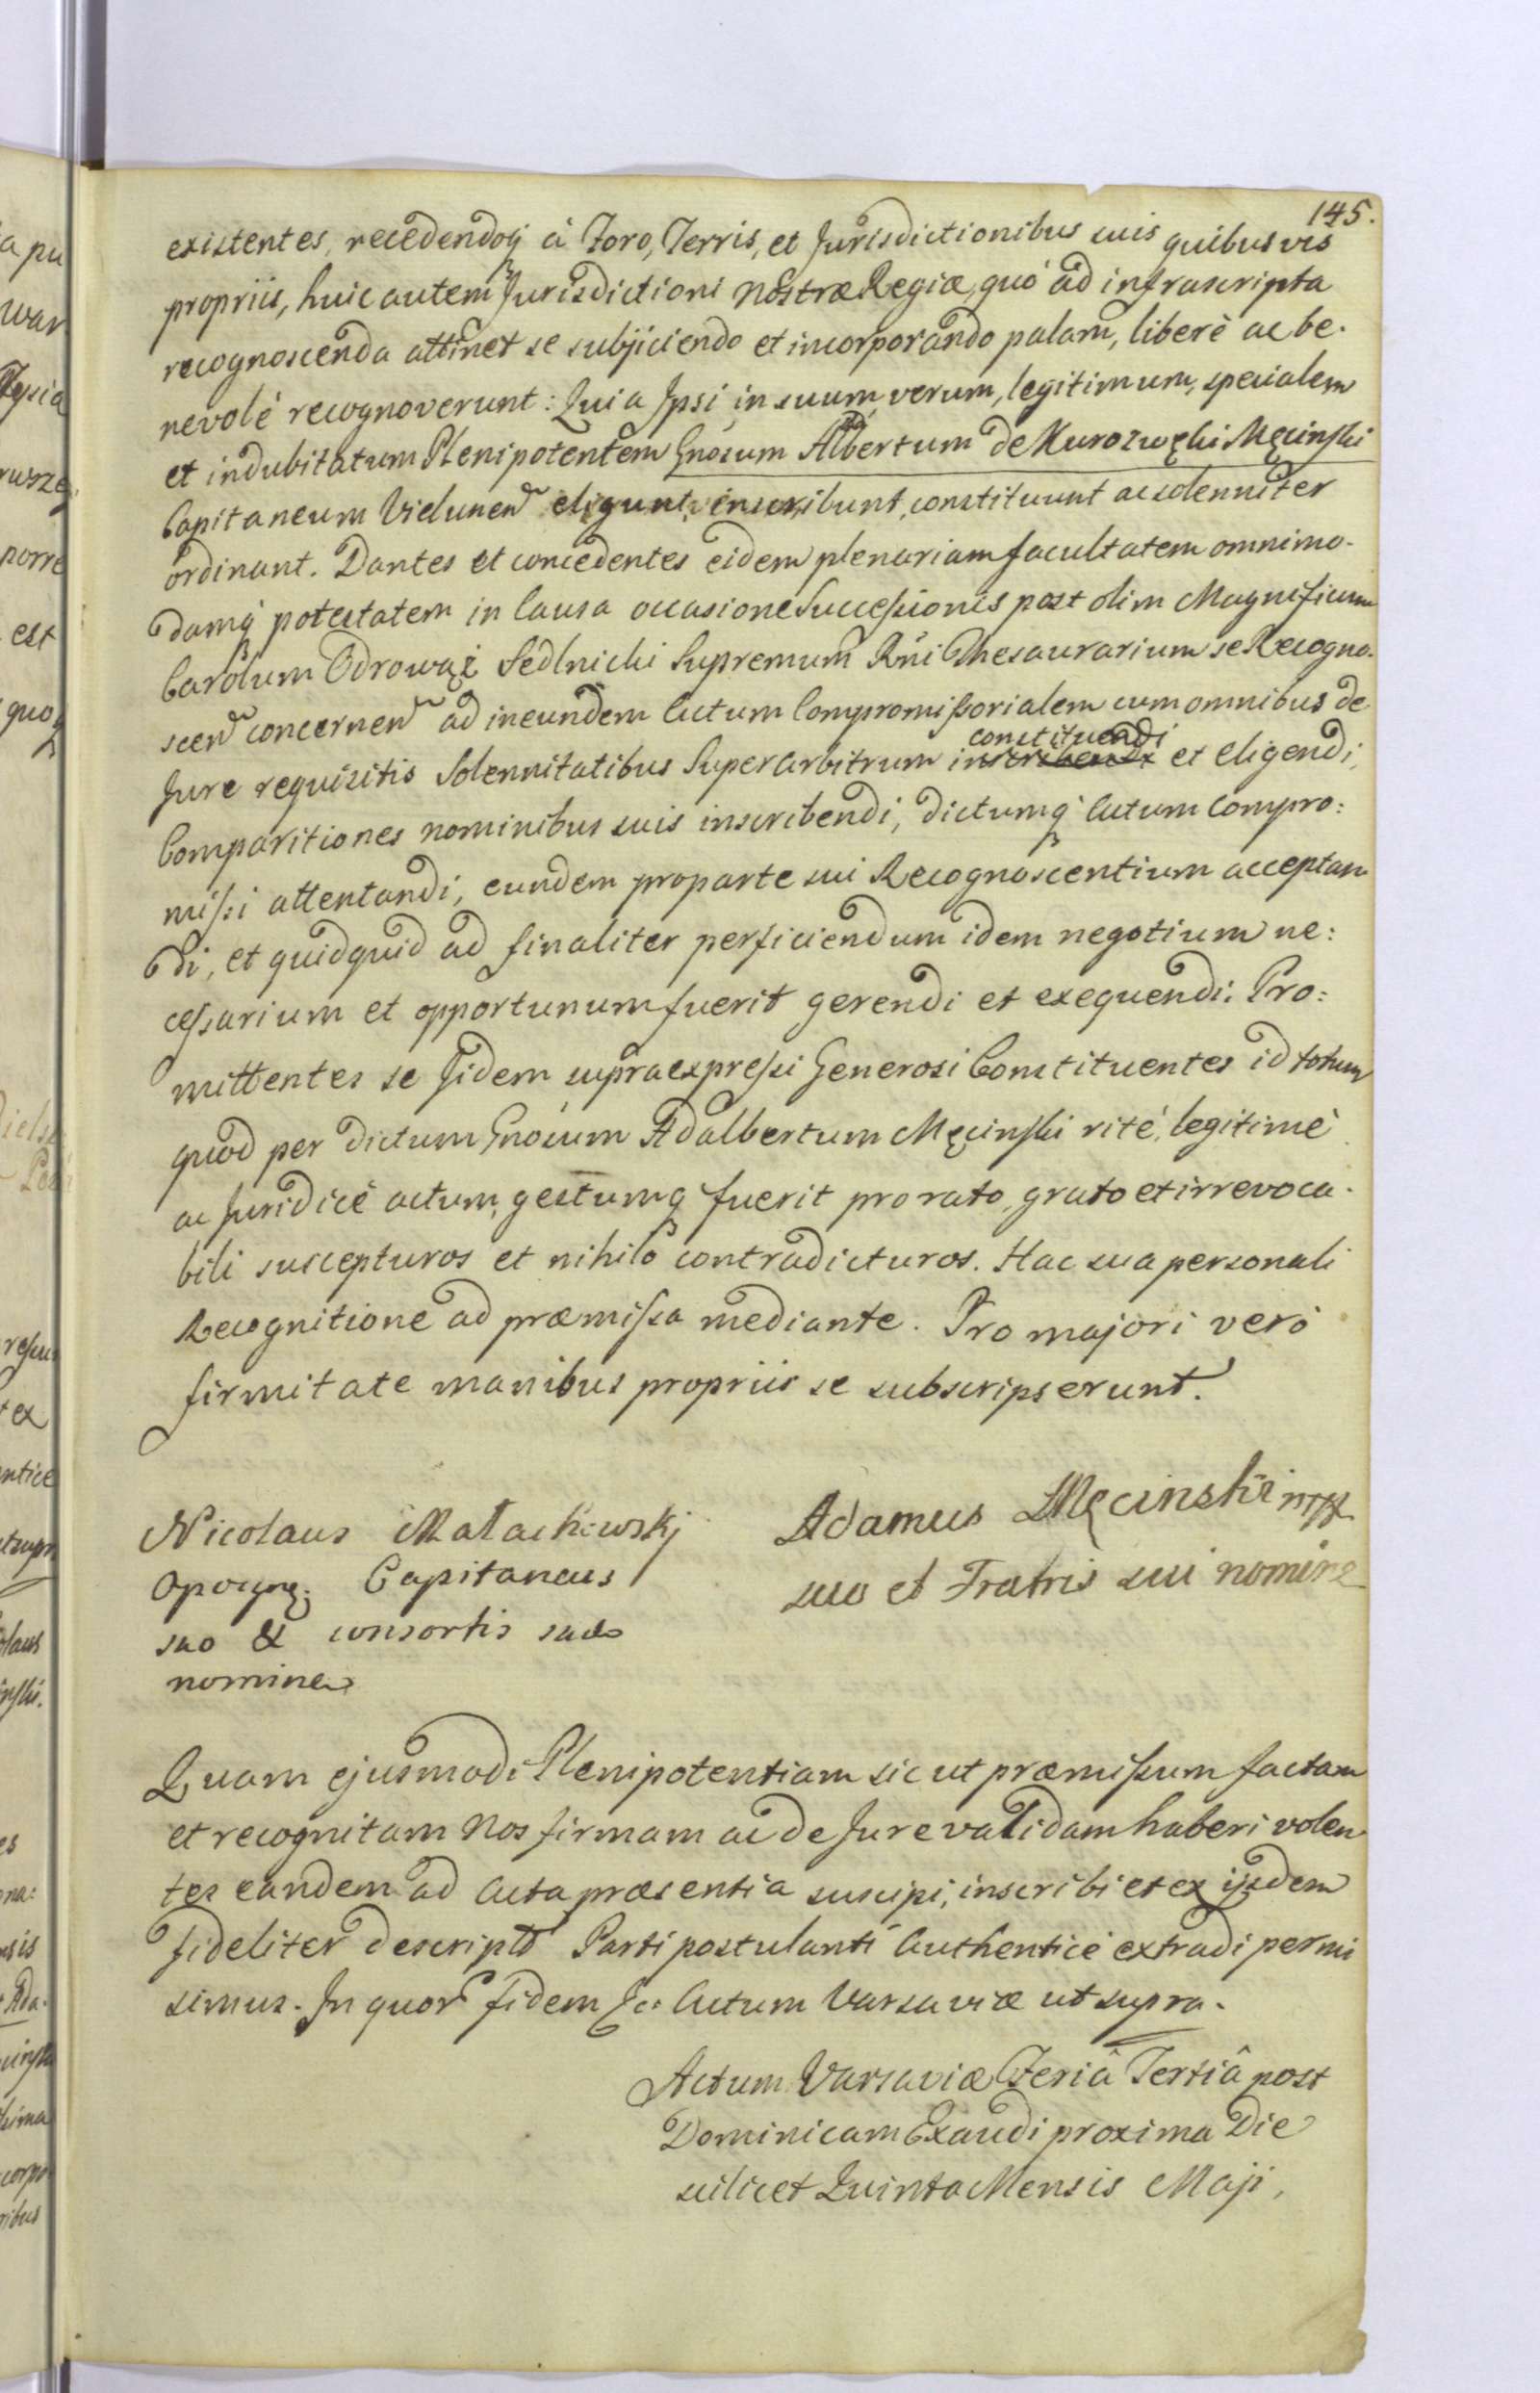 145.
existentes, recedendoq; à Foro, Terris, et Jurisdictionibus suis quibusvis
propriis, huic autem Jurisdictioni Nostræ Regiæ, quó ad infrascripta
recognoscenda attinet se subjiciendo et incorporando palam, liberè ac be-
nevolé recognoverunt: Quia Ipsi in suum verum, legitimum, specialem
et indubitatum Plenipotentem Gnosum Albertum de Kurozwęki Męcinski
Capitaneum Vielunen eligunt, inscribunt, constituunt ac solenniter
ordinant. Dantes et concedentes eidem plenariam facultatem omnimo-
damq; potestatem in Causa occasione Successionis post olim Magnificum
Carolum Odrowąż Sedlnicki Supremum Rńi Thesaurarium se Recogno-
scen concernen ad ineundem Actum Compromissorialem cum omnibus de
constituendi
Jure requisitis Solennitatibus Superarbitrum inscribendi et eligendi,
Comparitiones nominibus suis inscribendi, dictumq; Actum Compro:
missi attentandi, eundem proparte sui Recognoscentium acceptan
di, et quidquid ad finaliter perficiendum idem negotium ne:
cessarium et opportunum fuerit gerendi et exequendi: Pro:
mittentes se Iidem supraexpressi Generosi Constituentes id totum
quod per dictum Gnosum Adalbertum Męcinski rité, legitimè
ac Juridicé actum, gestumq; fuerit pro rato, grato et irrevoca-
bili suscepturos et nihilo contradicturos. Hac sua personali
Recognitione ad præmissa mediante. Pro majori veró
firmitate manibus propriis se subscripserunt.
Nicolaus Małachowskj
Opoczyn: Capitaneus
suo & consortis suæ
nomine
Adamus Męcinski mpp
suo et Fratris sui nomine
Quam ejusmodi Plenipotentiam sic ut præmissum factam
et recognitam Nos firmam ac de Jure validam haberi volen
tes eandem ad Acta præsentia suscipi, inscribi et ex ijsdem
fideliter descripto Parti postulanti Authenticé extradi permi
simus. In quor fidem &c. Actum Varsaviæ ut supra.
Actum Varsaviæ Feriâ Tertiâ post
Dominicam Exaudi proxima Die
scilicet Quinta Mensis Maji,